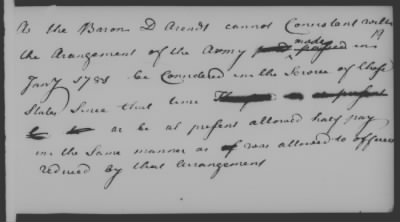 As the Baron D Arendt cannot Consistent with
the Arangement of the Army made in
Jany 1781 be Considered in the Service of these
States Since that time
or be at present allowed half pay
in the Same manner as was allowed to officers
reduced by that Arrangement